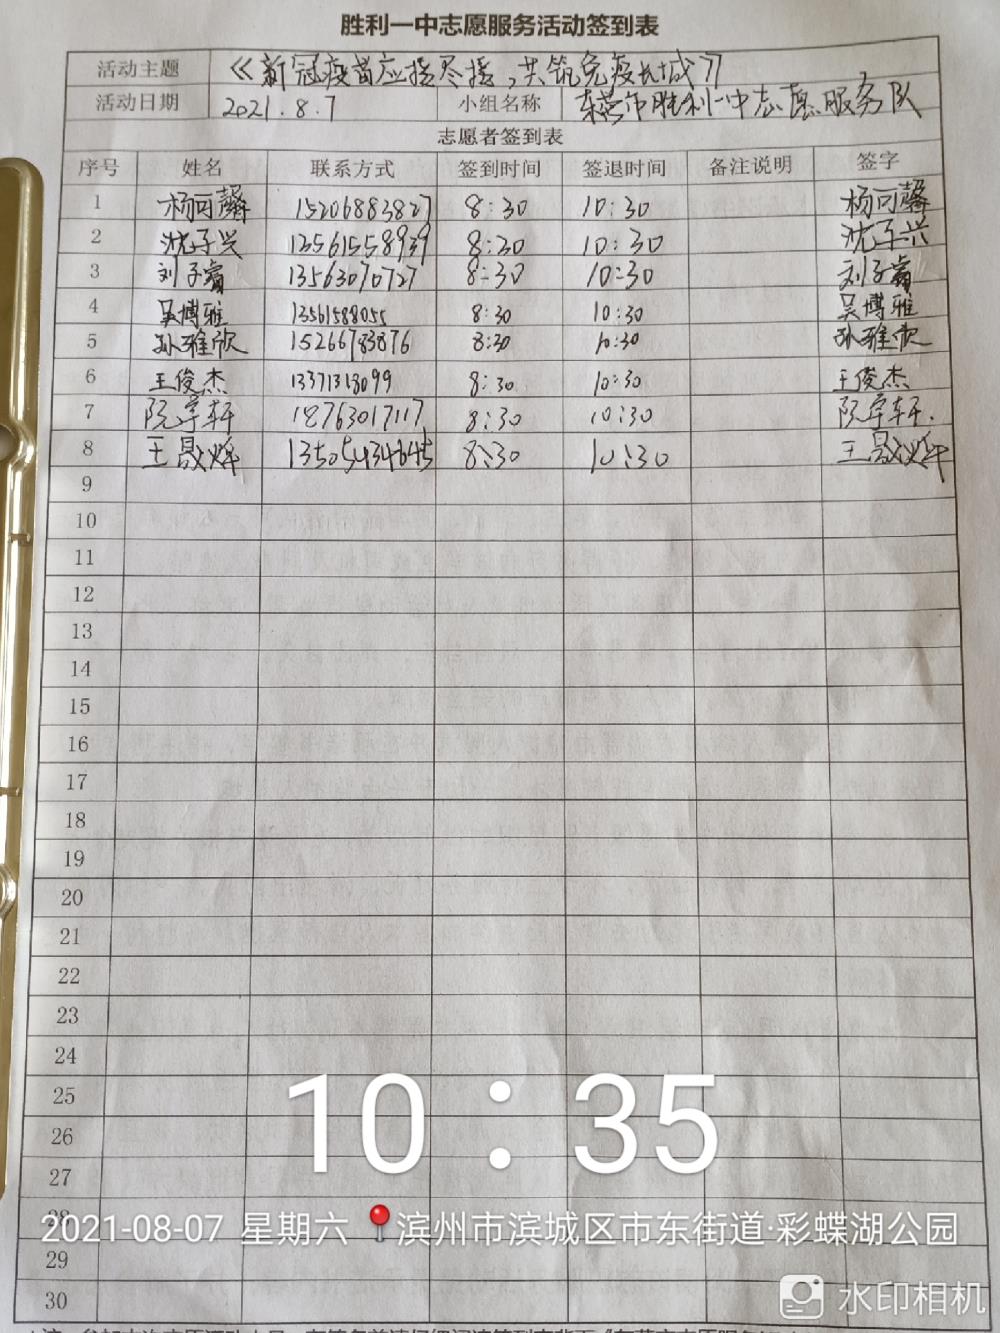 胜利一中志愿服务活动签到表
活动主题 《新冠疫苗应接尽接,共筑免疫长城》
活动日期 2021.8.7 小组名称 东营市胜利一中志愿服务队
志愿者签到表
序号 姓名 联系方式 签到时间 签退时间 备注说明 签字
1 杨可馨 15206883827 8:30 10:30 杨可馨
2 沈子兴 13561558939 8:30 10:30 沈子兴
3 刘子睿 13563070727 8:30 10:30 刘子睿
4 吴博雅 13561588055 8:30 10:30 吴博雅
5 孙雅欣 15266783876 8:30 10:30 孙雅欣
6 王俊杰 13371313099 8:30 10:30 王俊杰
7 阮宇轩 18763017117 8:30 10:30 阮宇轩.
8 王晟烨 13505434645 8:30 10:30 王晟烨
9
10
11
12
13
14
15
16
17
18
19
20
21
22
23
24
25
26
10:35
27
28
2021-08-07 星期六 滨州市滨城区市东街道·彩蝶湖公园
29
30
水印相机